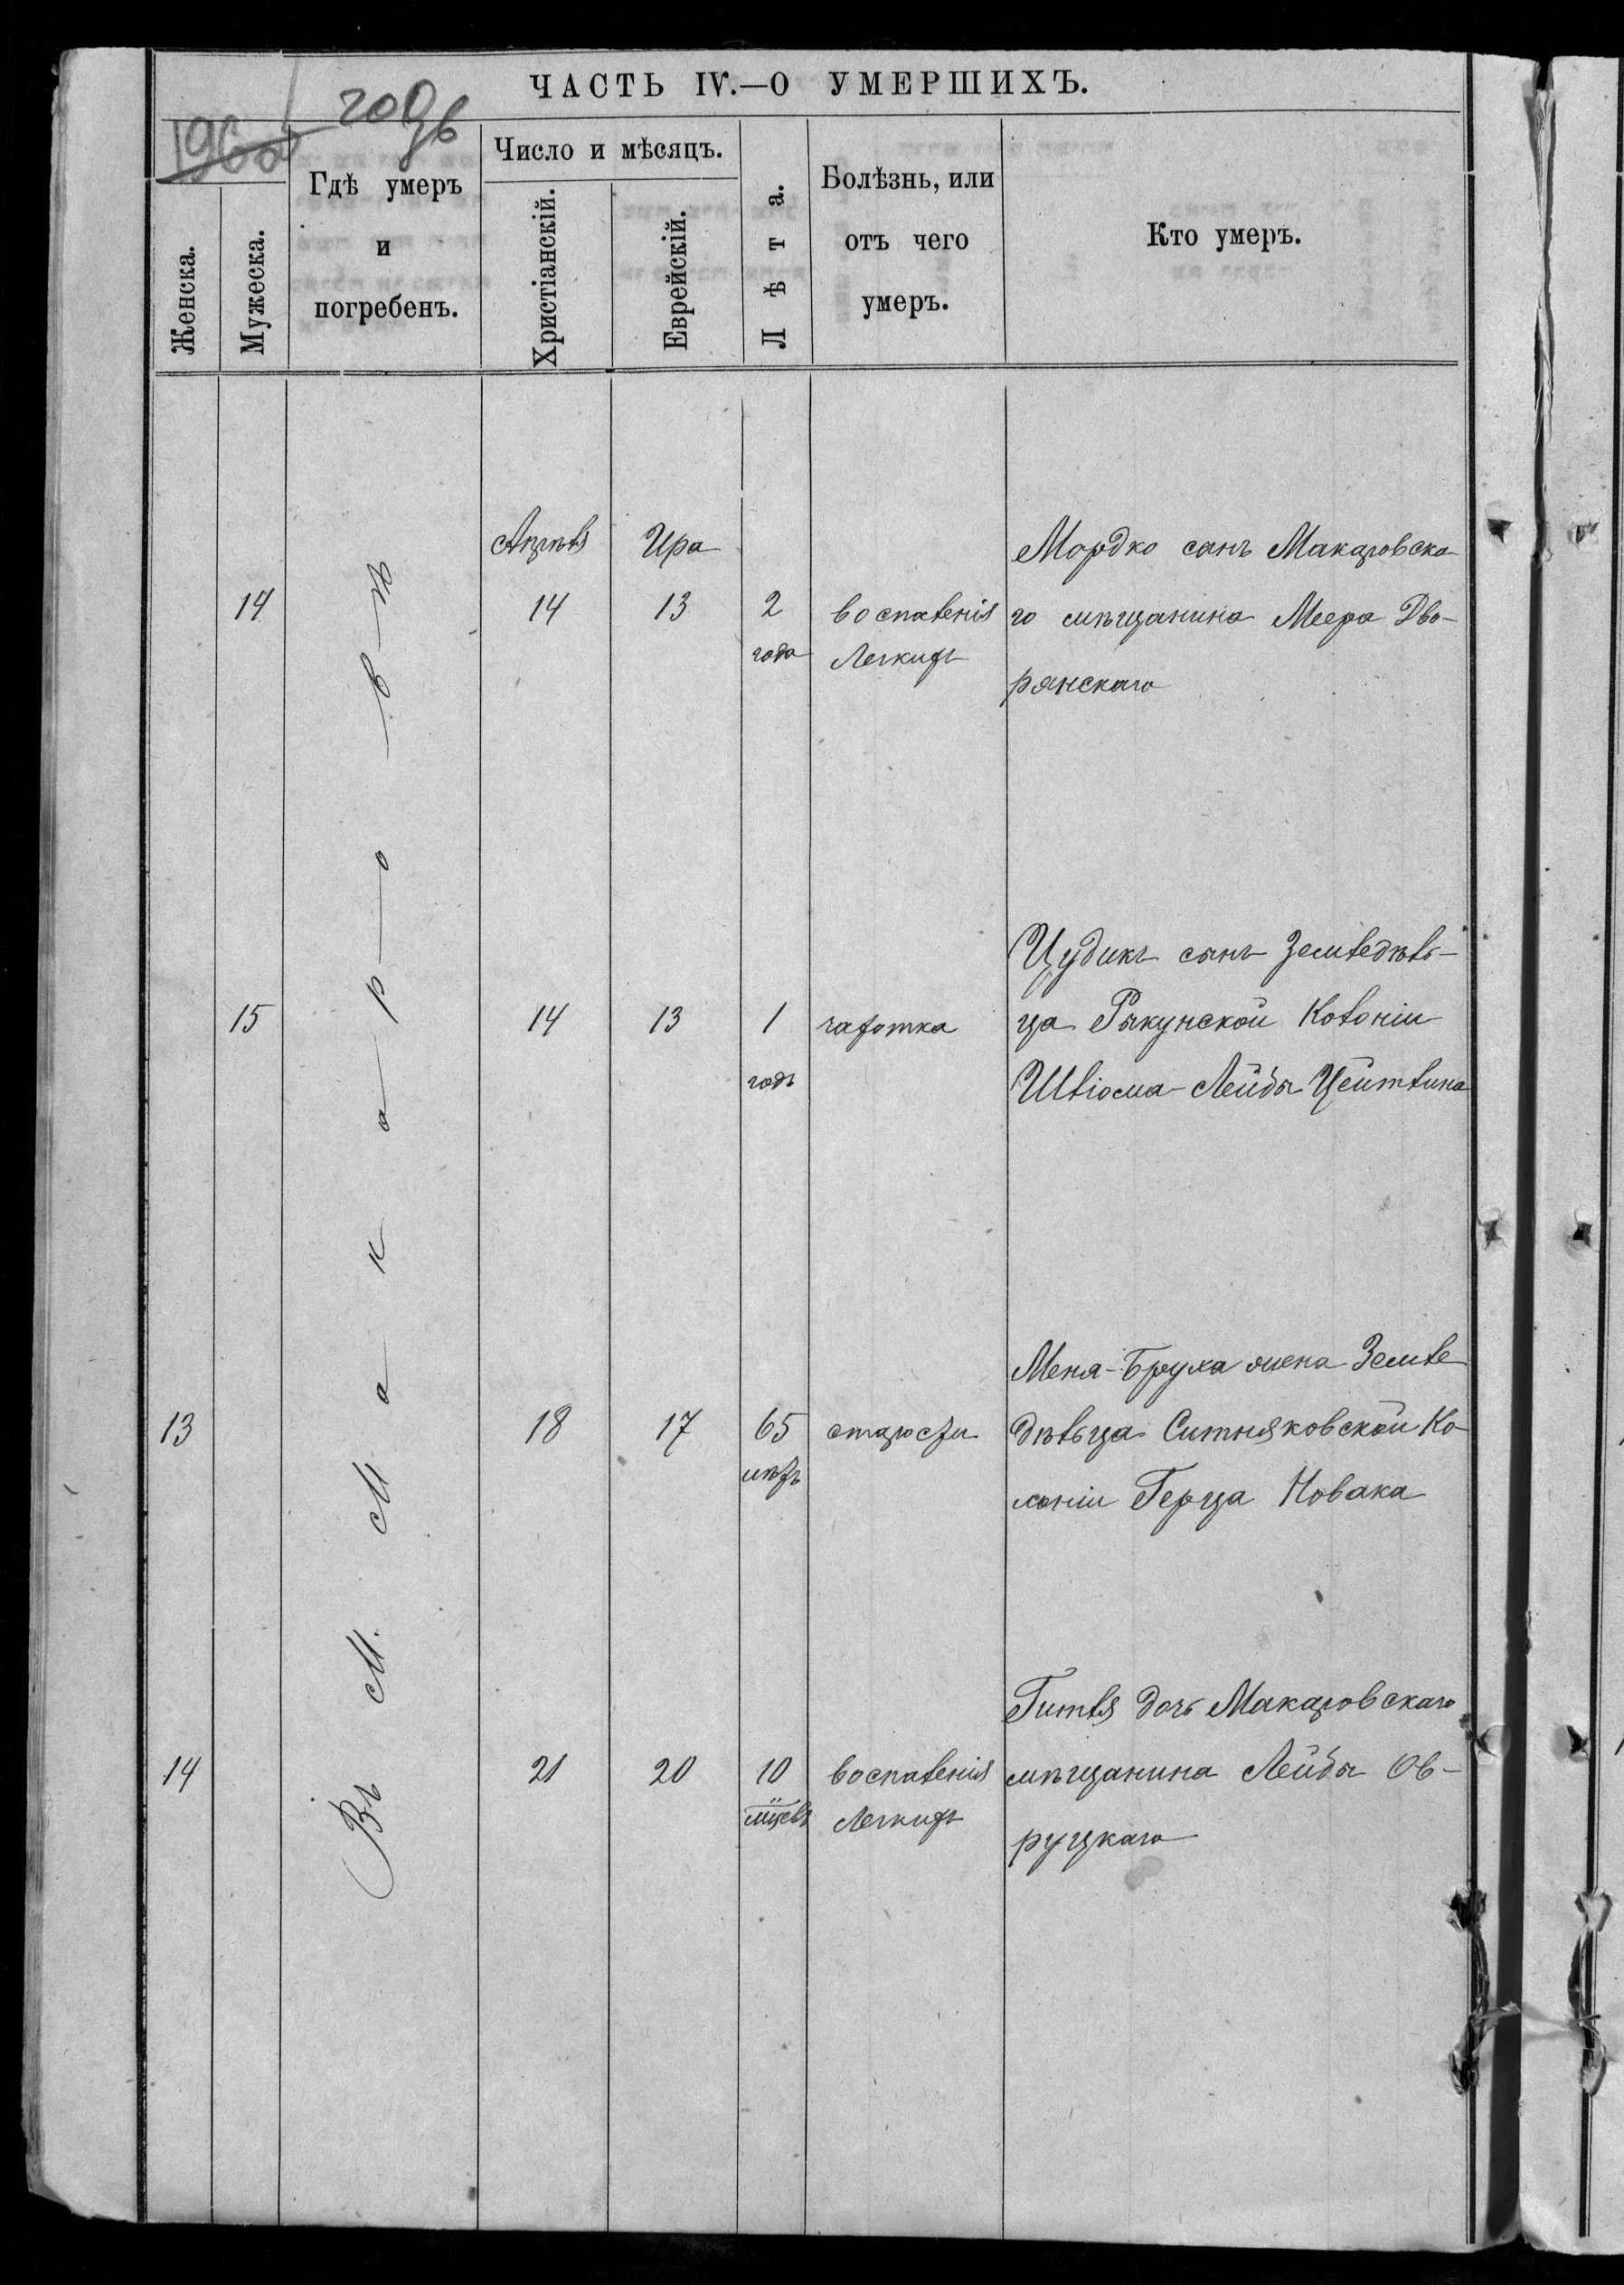 ЧАСТЬ IV.—О УМЕРШИХЪ.
1900 годъ
Женска.
Мужеска.
Гдѣ умеръ
и
погребенъ.
Число и мѣсяцъ.
Христіанскій.
Еврейскій.
Лѣта.
Болѣзнь, или
отъ чего
умеръ.
Кто умеръ.
Въ М. Макаровѣ
Апрѣля Ира
14 14 13 2 года
воспаленія
Легкихъ
Мордко сынъ Макаровска-
го мѣщанина Меера Дво-
рянскаго
15 14 13 1 годъ
чахотка
Цудикъ сынъ Земледѣль-
ца Рыкунской Колоніи
Шліома-Лейбы Цейтлина
13 18 17 65 лѣтъ
старости
Меня-Бруха жена Земле
дѣльца Ситняковской Ко-
лоніи Герца Новака
14 21 20 10 мцевъ
воспаленія
Легкихъ
Гитля дочь Макаровскаго
мѣщанина Лейбы Ов-
руцкаго